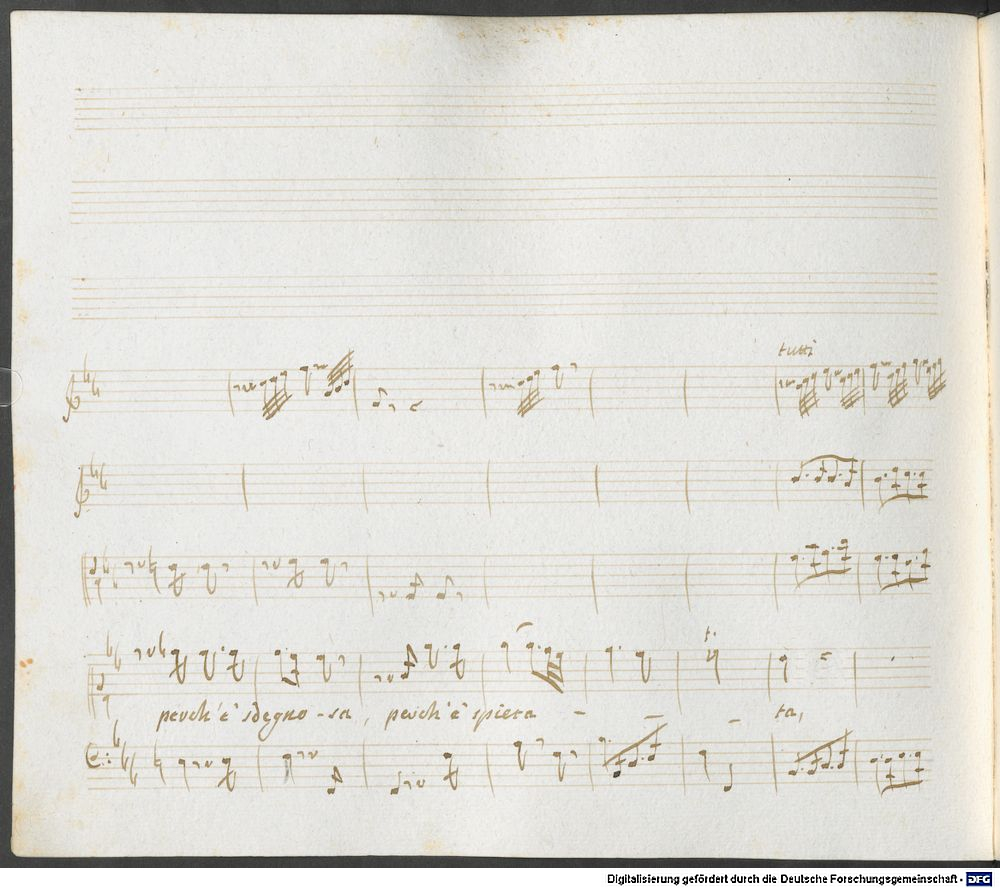 tutti
t.
perch'è sdegno-sa, perch'è spieta - - - ta,
Digitalisierung gefördert durch die Deutsche Forschungsgemeinschaft - DFG